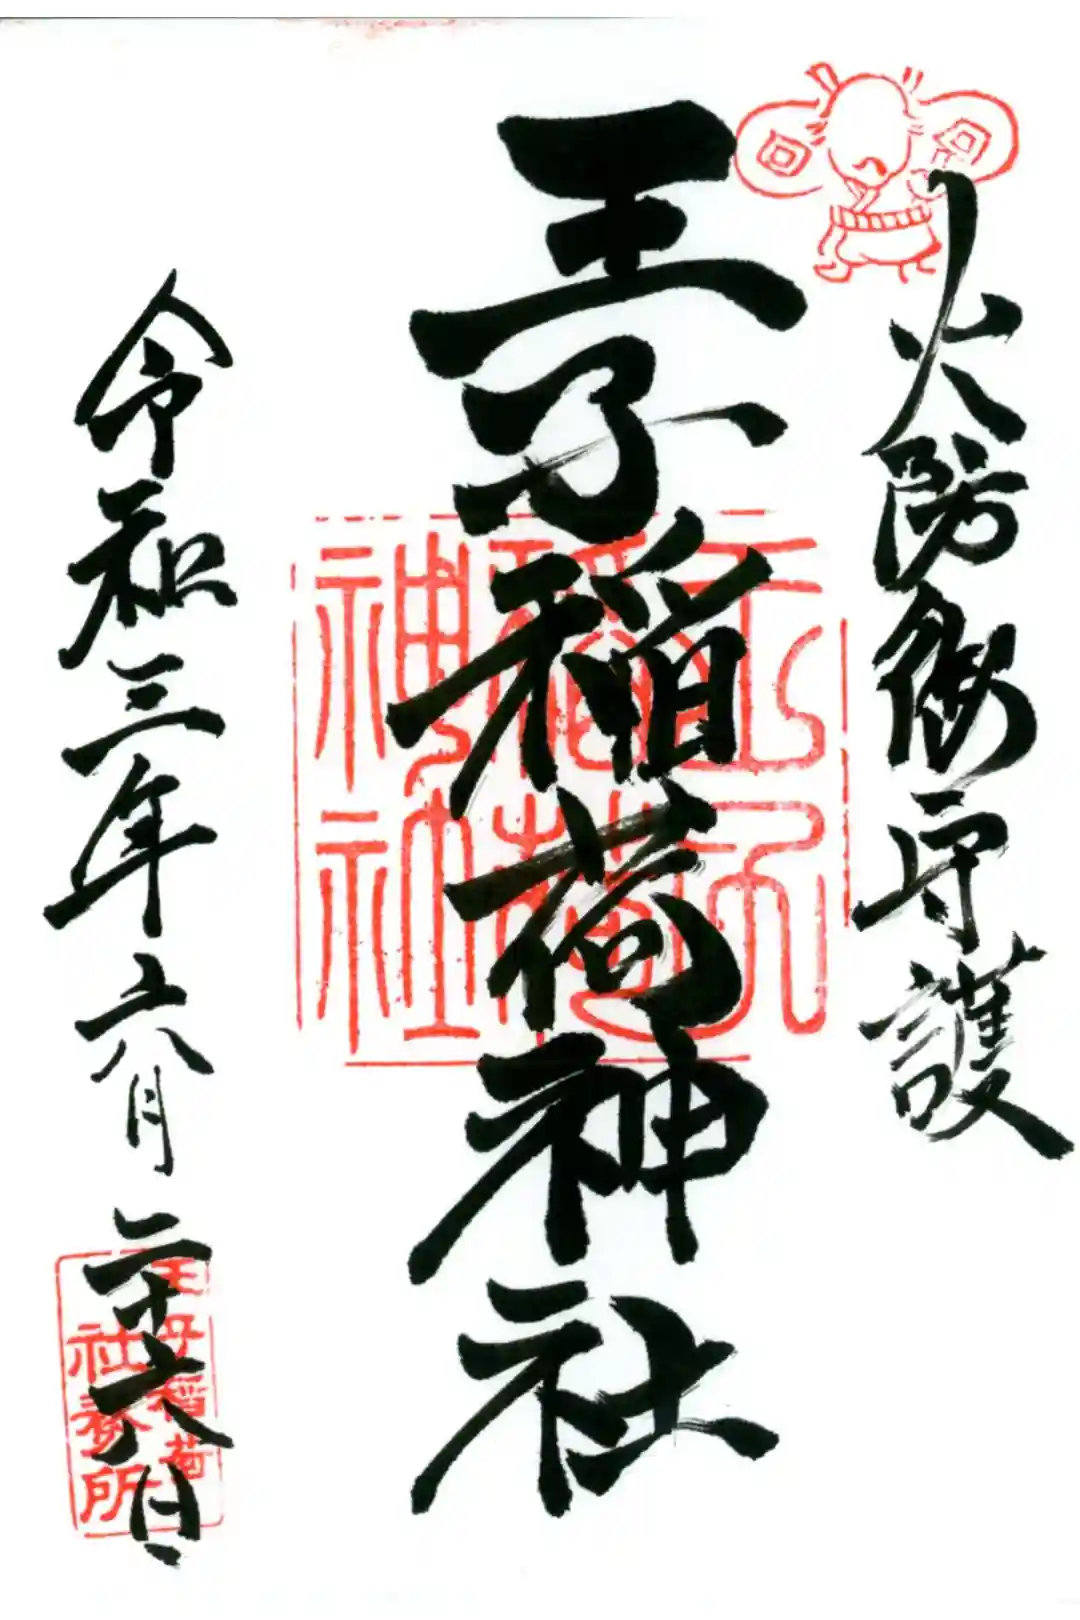 火防御守護
王子稲荷神社
王子稲荷神社
令和三年六月二十六日
王子稲荷
社務所